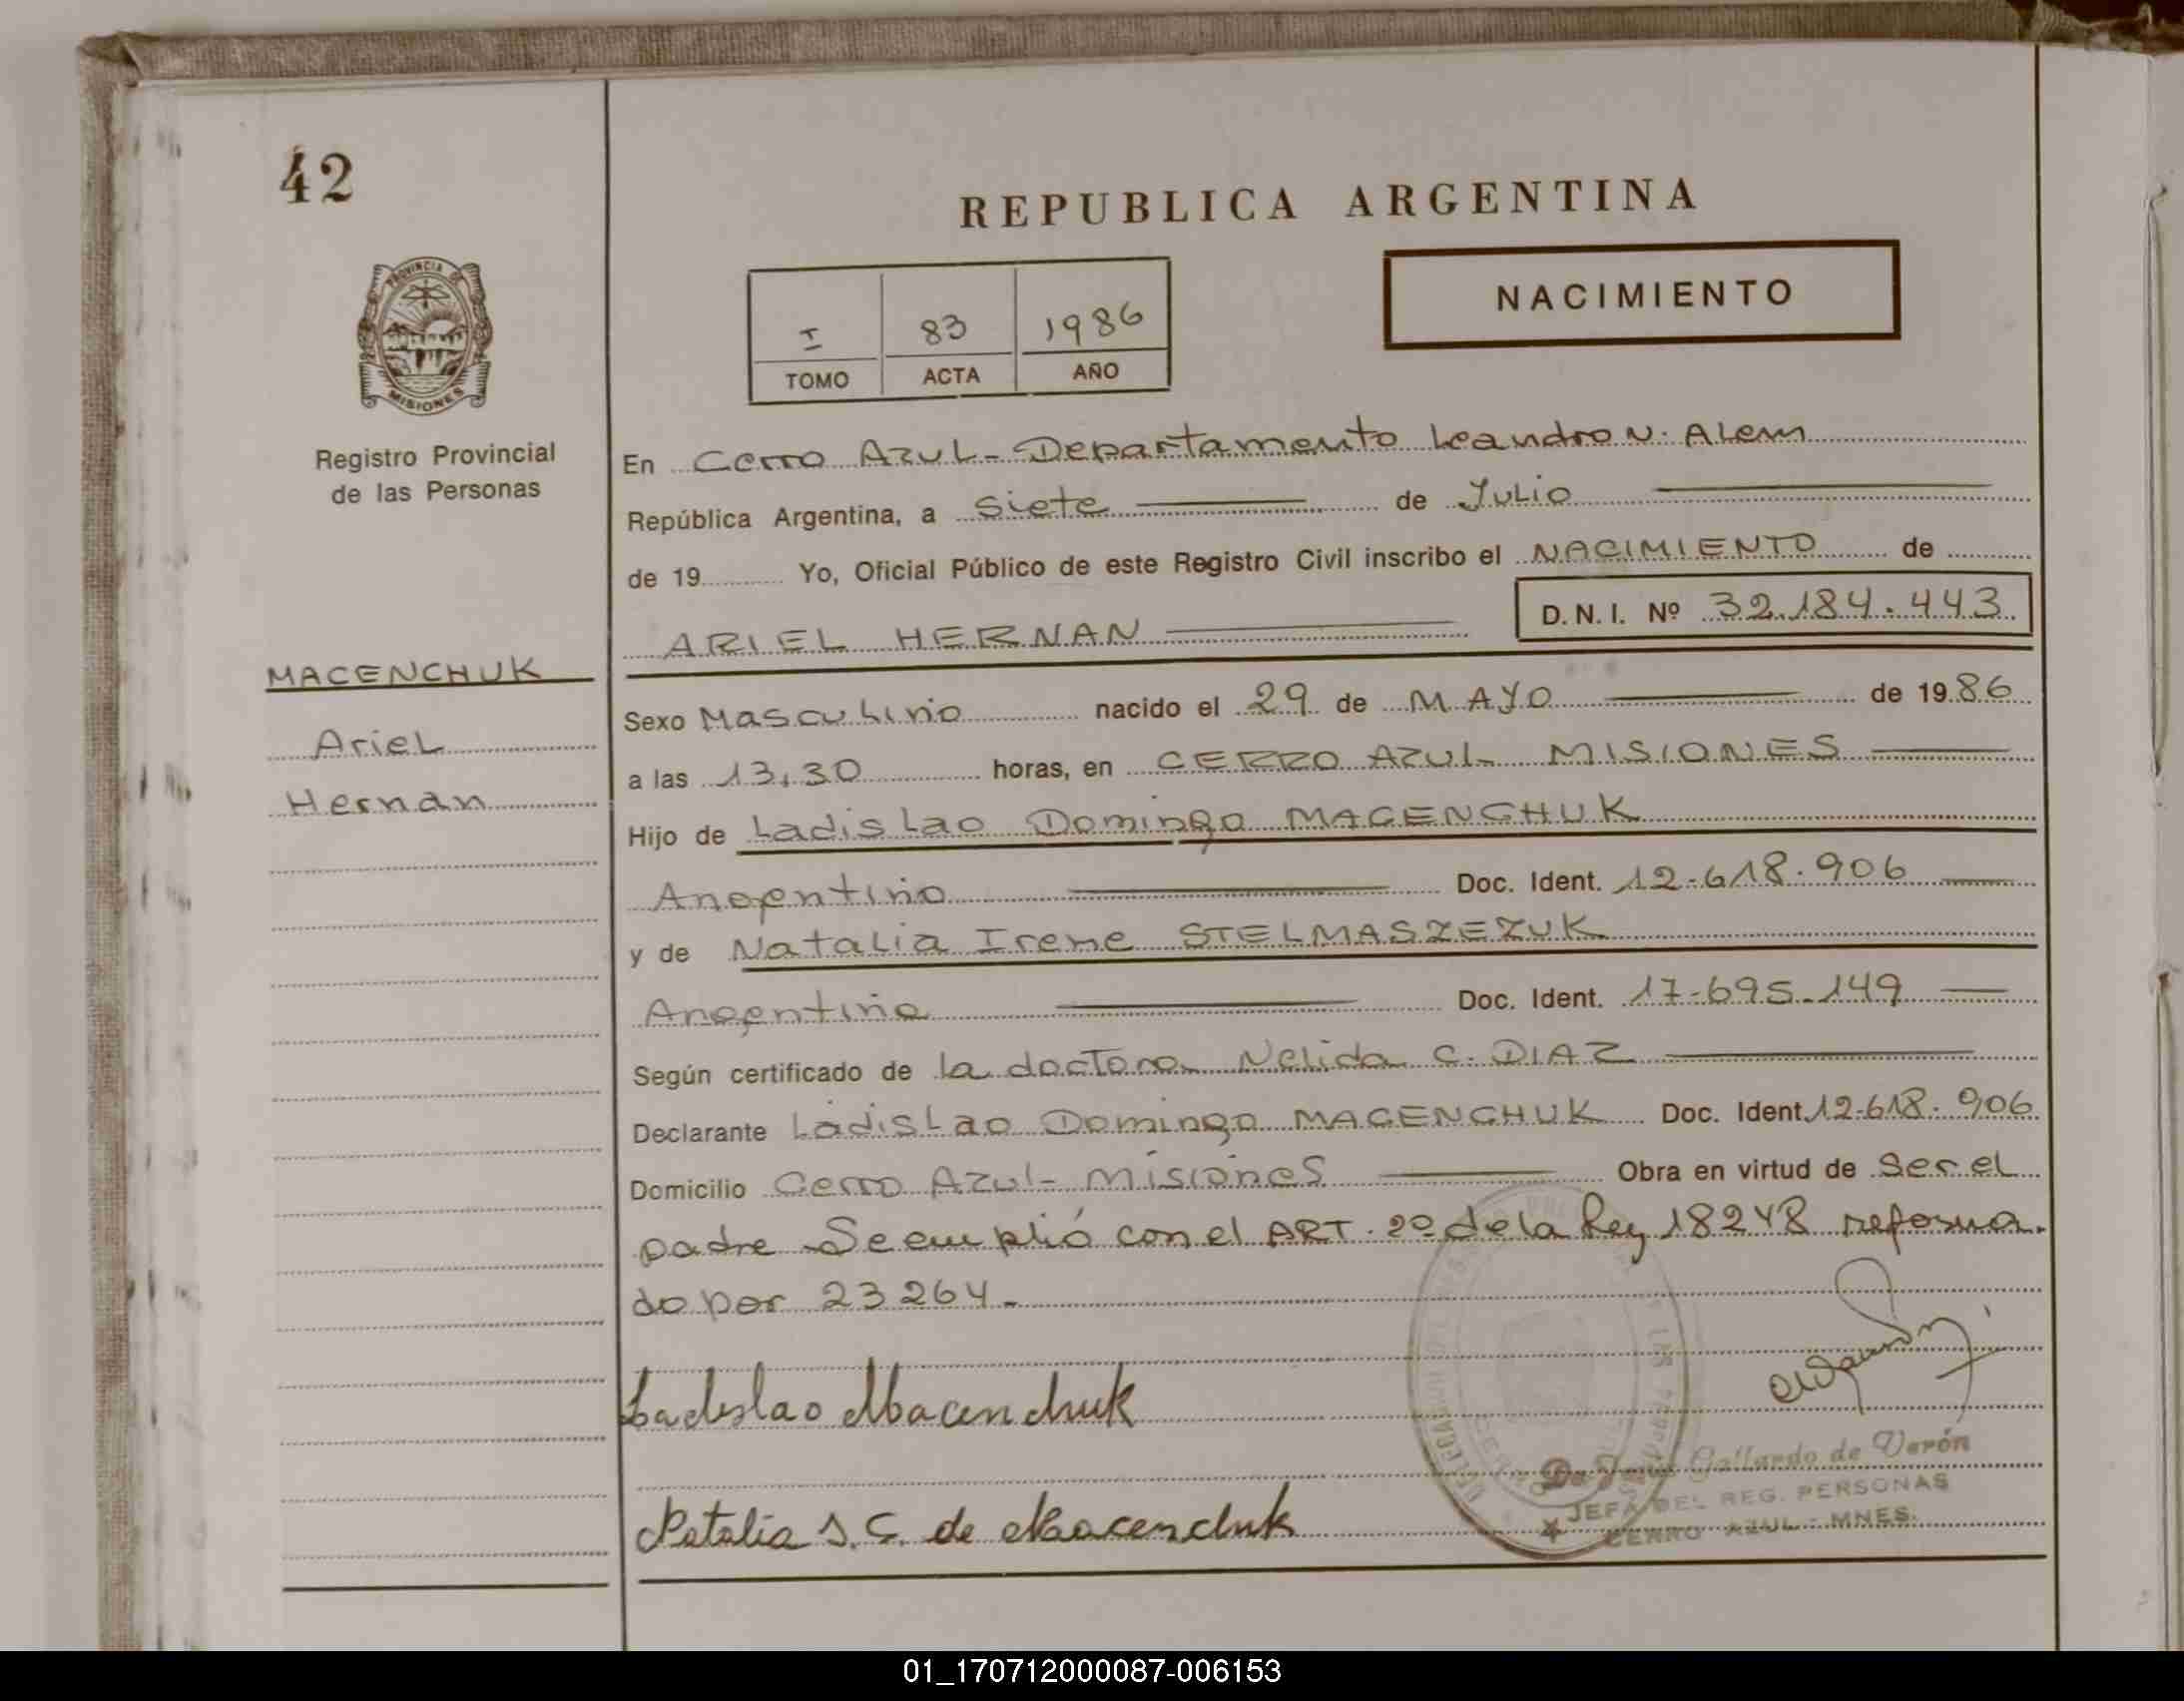 42
REPUBLICA ARGENTINA
NACIMIENTO
I 83 1986
TOMO ACTA AÑO
PROVINCIA DE
MISIONES
Registro Provincial
de las Personas
MACENCHUK
Ariel
Hernan
En Cerro Azul - Departamento Leandro N. Alem
República Argentina, a Siete de Julio
de 19 Yo, Oficial Público de este Registro Civil inscribo el NACIMIENTO de
ARIEL HERNAN D.N.I. Nº 32.184.443
Sexo Masculino nacido el 29 de MAYO de 1986
a las 13,30 horas, en CERRO AZUL MISIONES
Hijo de Ladislao Domingo MACENCHUK
Argentino Doc. Ident. 12-618.906
y de Natalia Irene STELMASZEZUK
Argentina Doc. Ident. 17-695.149
Según certificado de la doctora Nelida C. DIAZ
Declarante Ladislao Domingo MACENCHUK Doc. Ident. 12-618.906
Domicilio Cerro Azul - Misiones Obra en virtud de Ser el
padre Se cumplió con el ART. 2º de la Ley 18248 reforma.
do por 23264.
Ladislao Macenchuk
Gallardo de Verón
JEFA DEL REG. PERSONAS
CERRO AZUL - MNES.
Natalia S. de Macenchuk
01_170712000087-006153